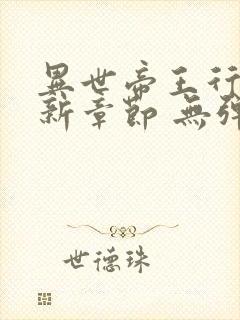 異世帝王行
新章節 無彈
世德珠